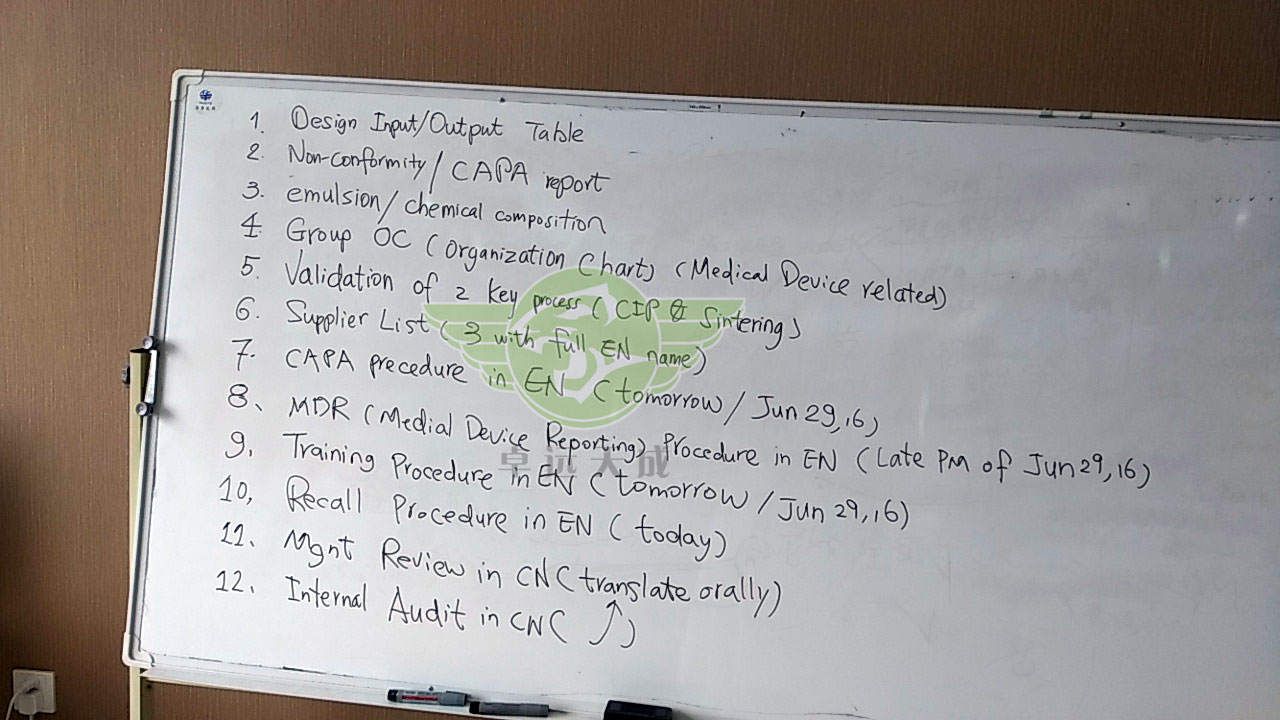 1. Design Input/Output Table
2. Non-conformity/ CAPA report
3. emulsion/ chemical composition
4. Group OC (Organization Chart) (Medical Device related)
5. Validation of 2 key process (CIP & Sintering)
6. Supplier List (3 with full EN name)
7. CAPA precedure in EN (tomorrow / Jun 29, 16)
8、 MDR (Medial Device Reporting) Procedure in EN (Late PM of Jun 29, 16)
9、 Training Procedure in EN (tomorrow / Jun 29, 16)
10、 Recall Procedure in EN (today)
11、 Mgnt Review in CN (translate orally)
12、 Internal Audit in CN ( ↑ )
卓远天成